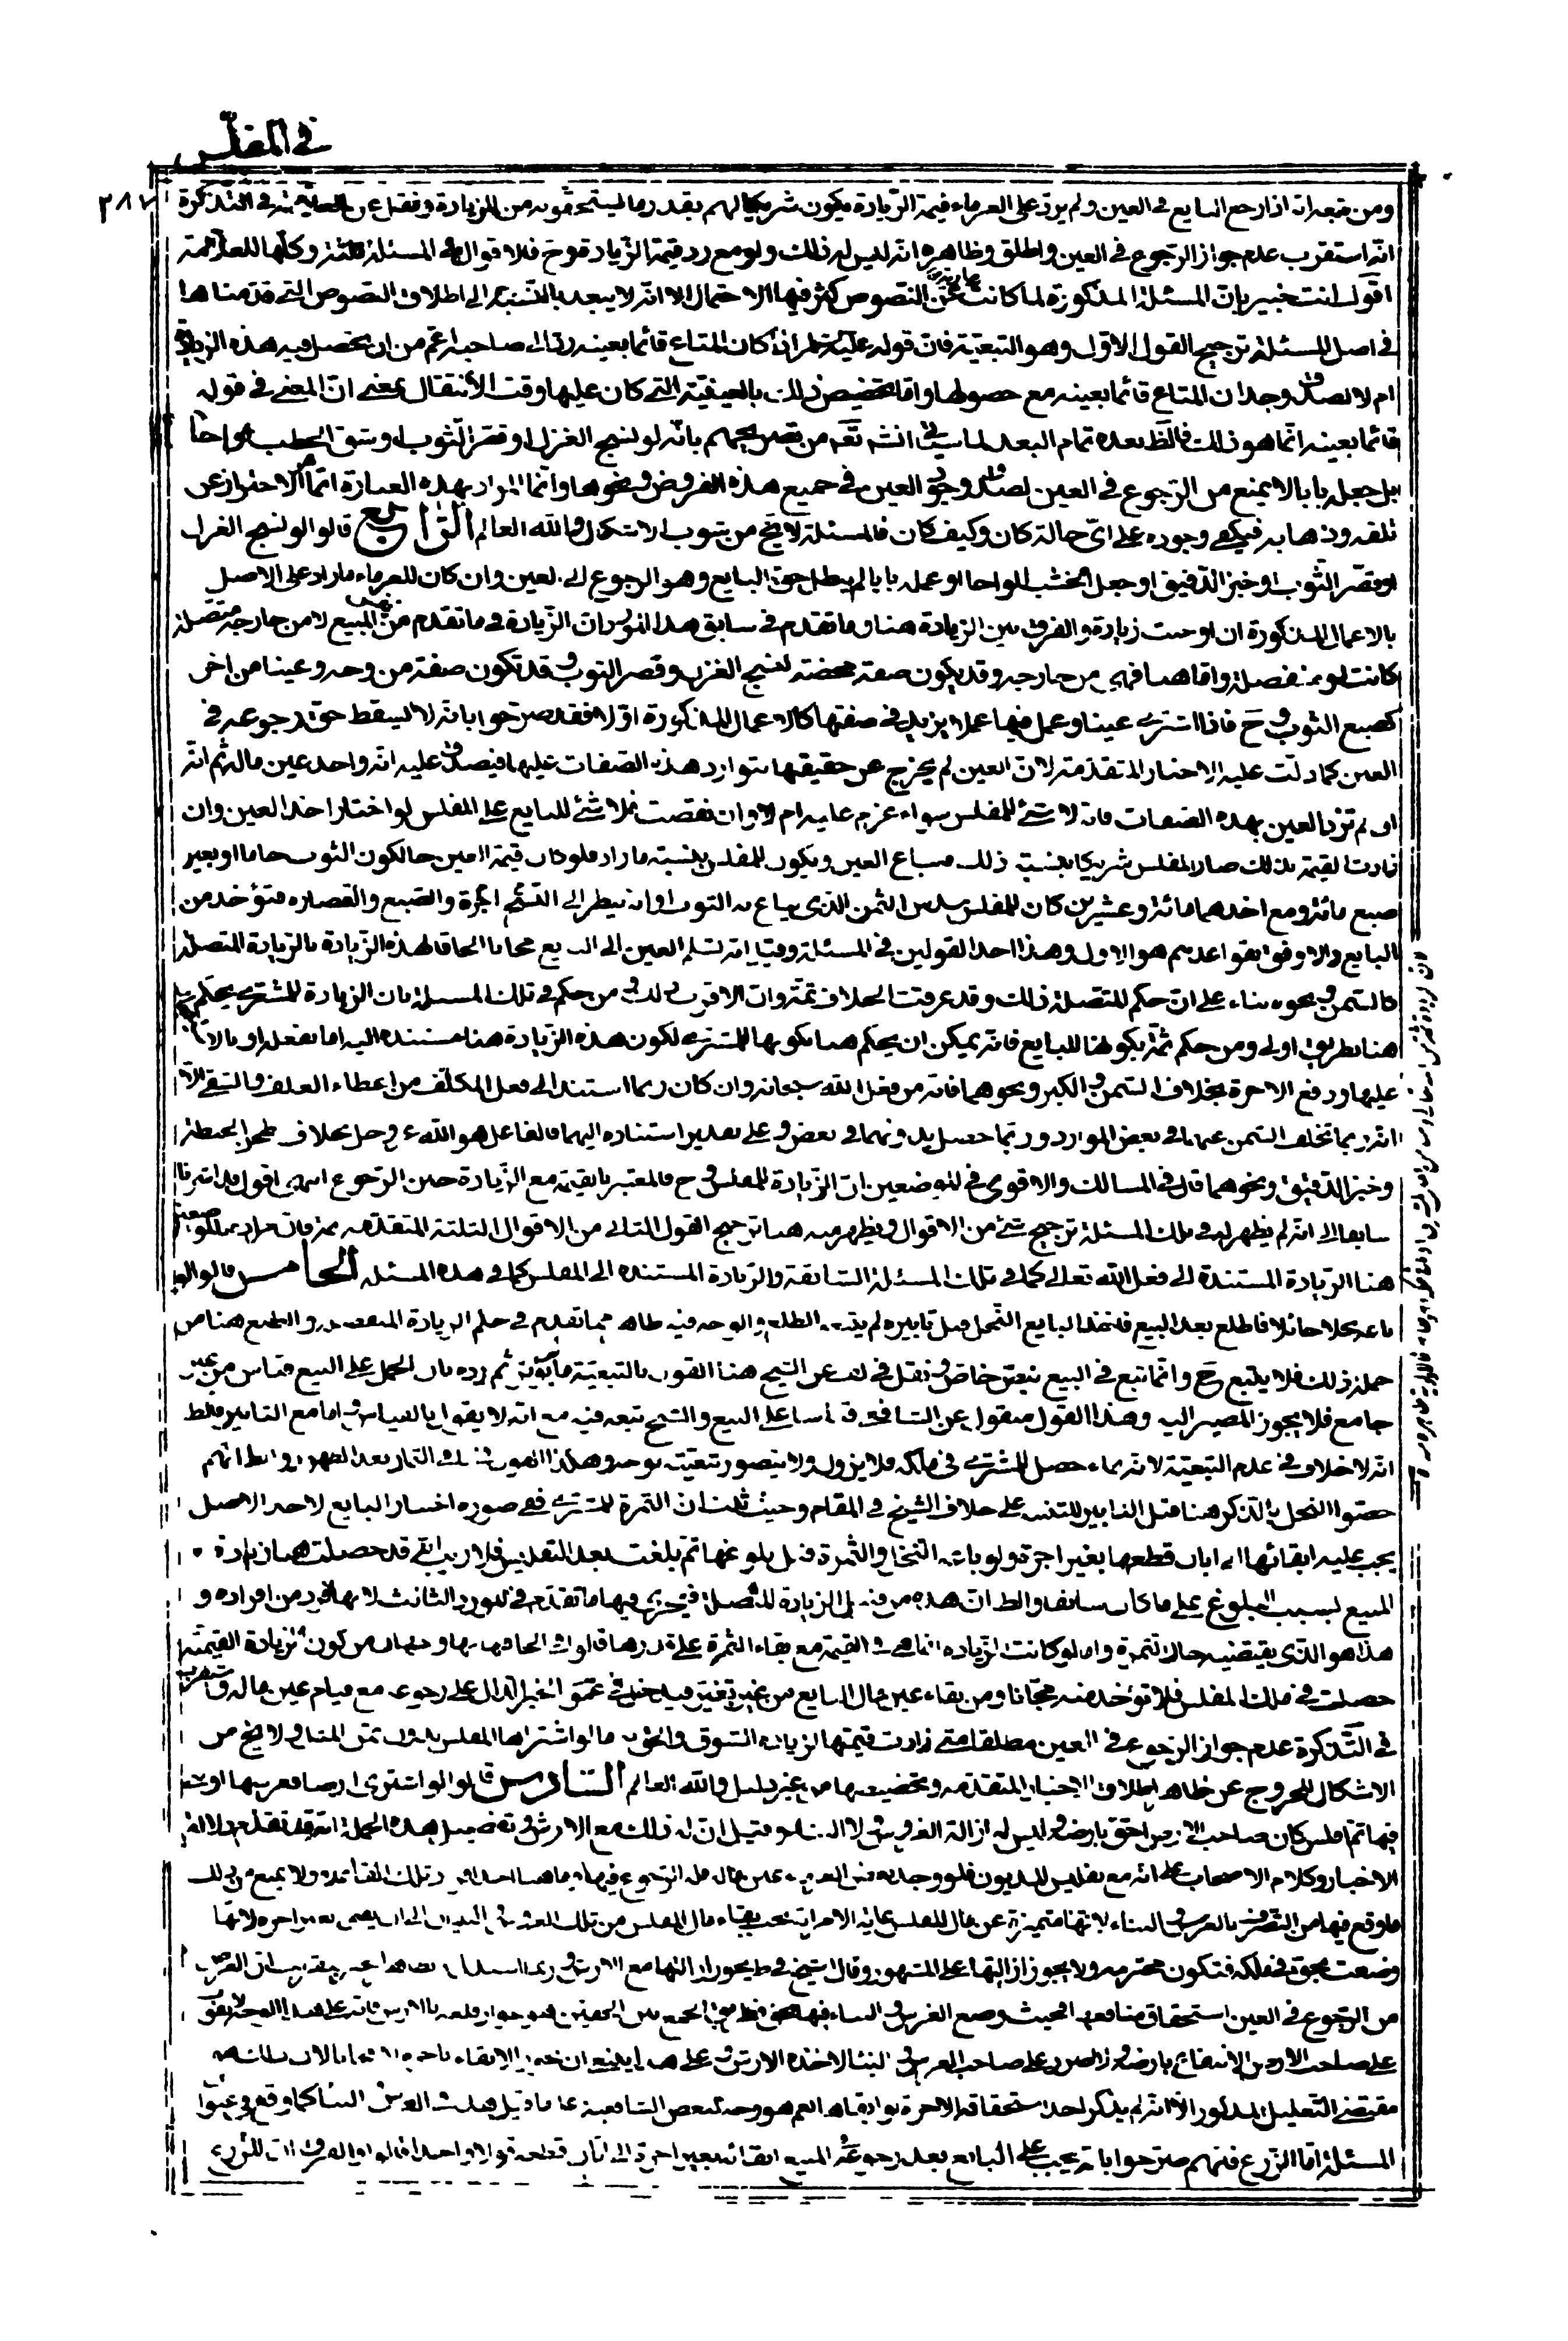 في المفلس
٢٨٧
ومن تبعه انه اذا رجع البايع في العين ولم يرد على الغرماء قيمة الزيادة يكون شريكا لهم بقدر ما يستحقونه من الزيادة ونقل عن العلامة في التذكرة
انه استقرب عدم جواز الرجوع في العين واطلق وظاهره انه ليس له ذلك ولو مع رد قيمة الزيادة وح فالاقوال في المسئلة ثلثة وكلها للعلامة
اقول انت خبير بان المسئلة المذكورة لما كانت عارية عن النصوص كثر فيها الاحتمال الا انه لا يبعد بالنسبة الى اطلاق النصوص التي قدمناها
في اصل المسئلة ترجيح القول الاول وهو التبعية فان قوله ان كان المتاع قائما بعينه رد الى صاحبه اعم من ان يحصل فيه هذه الزيادة
ام لا لصدق وجدان المتاع قائما بعينه مع حصولها واما تخصيص ذلك بالكيفية التي كان عليها وقت الانتقال بمعنى ان المعنى في قوله
قائما بعينه انما هو ذلك فالظ بعده تمام البعد لما سياتي انشم تعم من تصريحهم بانه لو نسج الغزل او قصر الثوب او شق الحطب الواحا
بل جعله بابا لا يمنع من الرجوع في العين لصدق وجود العين في جميع هذه الفروض ونحوها وانما المراد بهذه العبارة انما الاحتراز عن
تلفه وذهابه فيكفي وجوده على اي حالة كان وكيف كان فالمسئلة لا يخ من شوب الاشكال والله العالم الرابع قالوا لو نسج الغزل
او قصر الثوب او خبز الدقيق او جعل الخشب الواحا او عمله بابا لم يبطل حق البايع وهو الرجوع الى العين وان كان للغرماء ما زاد على الاصل
بالاعمال المذكورة ان اوجبت زيادة والفرق بين الزيادة هنا وما تقدم في سابق هذا المورد ان الزيادة في ما تقدم من نفس المبيع لا من خارجه متصلة
كانت او منفصلة واما هنا فهي من خارجه وقد يكون صفة محضة كنسج الغزل وقصر الثوب وقد تكون صفة من وجه وعينا من اخر
كصبغ الثوب وح فاذا اشترى عينا وعمل فيها عملا يزيد في صفتها كالاعمال المذكورة اولا فقد صرحوا بانه لا يسقط حق رجوعه في
العين كما دلت عليه الاخبار المتقدمة لان العين لم يخرج عن حقيقتها بتوارد هذه الصفات عليها فيصدق عليه انه واجد عين ماله ثم انه
ان لم تزد العين بهذه الصفات فانه لا شئ للمفلس سواء غرم عليه ام لا وان نقصت فلا شئ للبايع على المفلس لو اختار اخذ العين وان
زادت القيمة بذلك صار المفلس شريكا بنسبة ذلك فيباع العين ويكون للمفلس بنسبة ما زاد فلو كان قيمة العين حال كون الثوب خاما او بغير
صبغ مائة ومع احدهما مائة وعشرين كان للمفلس سدس الثمن الذي يباع به الثوب او انه ينظر الى اجرة والصبغ والقصارة فتؤخذ من
البايع والاوفق بقواعدهم هو الاول وهذا احد القولين في المسئلة وقيل انه تسلم العين الى البايع مجانا الحاقا لهذه الزيادة بالزيادة المتصلة
كالسمن ونحوه بناء على ان حكم المتصلة ذلك وقد عرفت الخلاف ثمة وان الاقرب من حكم في تلك المسئلة بان الزيادة للمشتري يحكم
هنا بطريق اولى ومن حكم ثمة بكونها للبايع فانه يمكن ان يحكم هنا بكونها للمشتري لكون هذه الزيادة هنا مستندة اليه اما بفعله او بالا
عليها ودفع الاجرة بخلاف السمن والكبر ونحوهما فانه من فعل الله سبحانه وان كان ربما استند الى فعل المكلف من اعطاء العلف والسقي الا
انه ربما تخلف السمن عنهما في بعض الموارد وربما حصل بدونهما في بعض وعلى تقدير استناده اليهما فالفاعل هو الله عز وجل بخلاف طحن الحنطة
وخبز الدقيق ونحوهما قال في المسالك والاقوى في الموضعين ان الزيادة للمفلس وح فالمعتبر بالقيمة مع الزيادة حين الرجوع انتهى اقول قد اشرنا
سابقا الى انه لم يظهر له في تلك المسئلة ترجيح شئ من الاقوال ويظهر منه هنا ترجيح القول الثاني من الاقوال الثلثة المتقدمة ثمة
هنا الزيادة المستندة الى فعل الله تعالى كما في تلك المسئلة السابقة والزيادة المستندة الى المفلس كما في هذه المسئلة الخامس قالوا لو
باعه نخلا حائلا فاطلع بعد البيع فاخذ البايع النخل قبل تابيره لم يتبعه الطلع والوجه فيه ظاهر مما تقدم في حكم الزيادة المنفصلة والطلع هنا من
جملة ذلك فلا يتبع ح وانما تبع في البيع بنص خاص ونقل في لف عن الشيخ هنا القول بالتبعية ما لم يؤبر ثم رده بان الحمل على البيع قياس من غير
جامع فلا يجوز المصير اليه وهذا القول منقول عن الشافعي قياسا على البيع والشيخ تبعه فيه مع انه لا يقول بالقياس واما مع التابير فالظ
انه لا خلاف في عدم التبعية لانه نماء حصل للمشتري في ملكه فلا يزول ولا يتصور تبعيته بوجه وهكذا القول في الثمار بعد الظهور والظ انهم
خصوا النخل بالذكر هنا قبل التابير للتنبيه على خلاف الشيخ في المقام وحيث ثبت ان الثمرة للمشتري ففي صورة اختيار البايع لاخذ الاصل
يجب عليه ابقائها الى ابان قطعها بغير اجرة ولو باعه النخل والثمرة قبل بلوغها ثم بلغت بعد التفليس فلا ريب انه قد حصلت هنا زيادة
المبيع بسبب البلوغ على ما كان سابقا والظ ان هذه من قبيل الزيادة المتصلة فيجري فيها ما تقدم في المورد الثالث لانها فرد من افراده و
هذا هو الذي يقتضيه حال الثمرة واما لو كانت الزيادة انما هي في القيمة مع بقاء الثمرة على قدرها قالوا في الحاقها بها وجهان من كون الزيادة القيمة
حصلت في ملك المفلس فلا تؤخذ منه مجانا ومن بقاء عين مال البايع من غير تغيير فيدخل في عموم الخبر الدال على رجوعه مع قيام عين ماله واستقرب
في التذكرة عدم جواز الرجوع في العين مطلقا متى زادت قيمتها لزيادة السوق والحق به ما لو اشتراها المفلس بدون ثمن المثل ولا يخ من
الاشكال للخروج عن ظاهر اطلاق الاخبار المتقدمة وتخصيصها من غير دليل والله العالم السادس قالوا لو اشترى ارضا فغرسها او بنى
فيها ثم افلس كان صاحب الارض احق بارضه وليس له ازالة الغروس لا البناء وقيل ان له ذلك مع الارش وتفصيل هذه الجملة انه قد تقدم دلالة
الاخبار وكلام الاصحاب على انه مع تفليس المديون فلو وجد بعض الغرماء عين ماله فله الرجوع فيها وما هنا احد افراد تلك القاعدة ولا يمنع من ذلك
ما وقع فيها من التصرف بالغرس والبناء لانها متميزة عن مال المفلس غاية الامر انه يجب بقاء مال المفلس من تلك الغروس والبنيان الى ان يفنى بغير اجرة لانها
وضعت بحق في ملكه فتكون محترمة ولا يجوز ازالتها على المشهور وقال الشيخ في ط يجوز ازالتها مع الارش
من الرجوع في العين استحقاق منافعها وحيث وضع الغرس والبناء فيها بحق فطريق الجمع بين الحقين هو جواز قلعه بالارش فانه على هذا الوجه لا يفوت
على صاحب الارض الانتفاع بارضه ولا ضرر على صاحب الغرس والبناء لاخذه الارش وعلى هذا ينبغي ان
مقتضى التعليل المذكور الا انه لم يذكر احد استحقاقه الاجرة لو ابقاها نعم هو وجه لبعض الشافعية
المسئلة اما الزرع فانهم صرحوا بانه يجب على البايع بعد رجوعه في المبيع ابقائه بغير اجرة